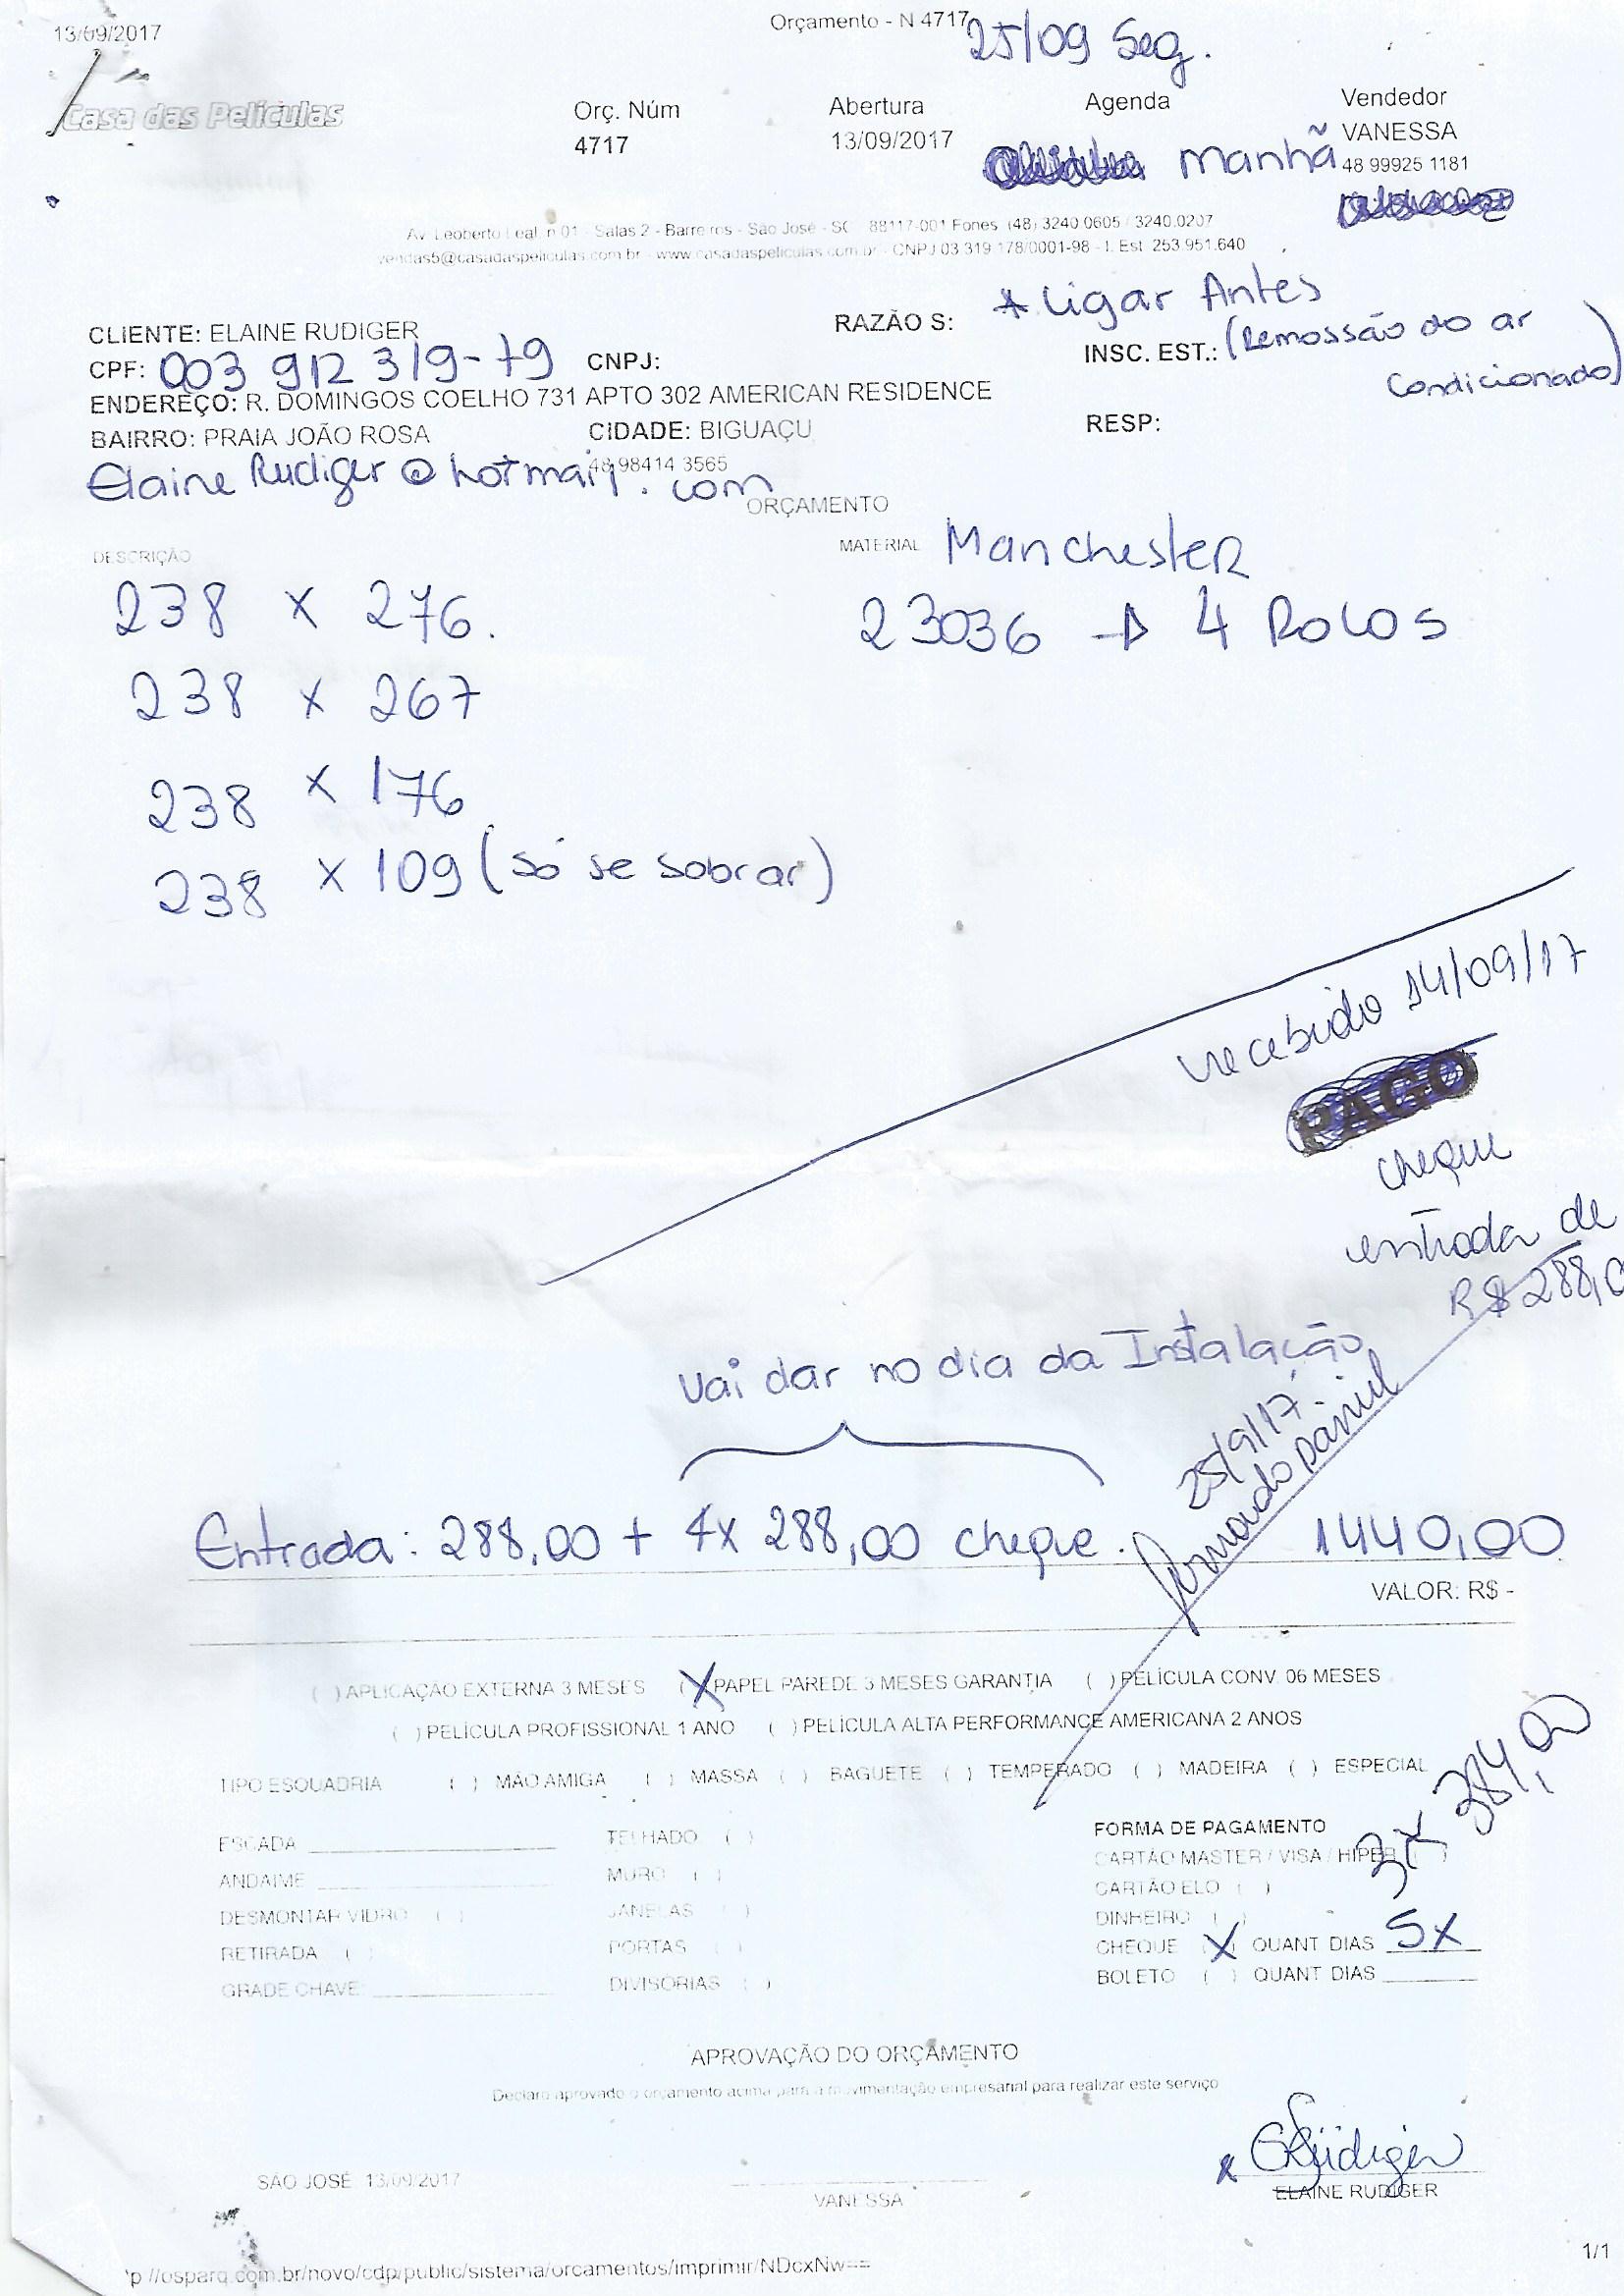 13/09/2017
Orçamento - N 4717
25/09 Seg.
Casa das Películas
Orç. Núm
Abertura
Agenda
Vendedor
4717
13/09/2017
manhã
VANESSA
48 99925 1181
Av. Leoberto Leal, n 01 - Salas 2 - Barreiros - São José - SC - 88117-001 Fones (48) 3240.0605 / 3240.0207
vendas5@casadaspeliculas.com.br - www.casadaspeliculas.com.br - CNPJ 03.319.178/0001-98 - I. Est. 253.951.640
* Ligar Antes
(Remossão do ar
Condicionado)
CLIENTE: ELAINE RUDIGER
RAZÃO S:
CPF: 003 912 319-79
CNPJ:
INSC. EST.:
ENDEREÇO: R. DOMINGOS COELHO 731 APTO 302 AMERICAN RESIDENCE
BAIRRO: PRAIA JOÃO ROSA
CIDADE: BIGUAÇU
RESP:
48 98414 3565
Elaine Rudiger@hotmail.com
ORÇAMENTO
DESCRIÇÃO
MATERIAL
Manchester
238 x 276.
23036 → 4 Rolos
238 x 267
238 x 176
238 x 109 (só se sobrar)
recebido 14/09/17
PAGO
cheque
entrada de
R$ 288,0
Vai dar no dia da Instalação
25/9/17
Entrada: 288,00 + 4x 288,00 cheque.
1440,00
VALOR: R$ -
( ) APLICAÇÃO EXTERNA 3 MESES (X) PAPEL PAREDE 3 MESES GARANTIA ( ) PELÍCULA CONV. 06 MESES
( ) PELÍCULA PROFISSIONAL 1 ANO ( ) PELÍCULA ALTA PERFORMANCE AMERICANA 2 ANOS
TIPO ESQUADRIA ( ) MÃO AMIGA ( ) MASSA ( ) BAGUETE ( ) TEMPERADO ( ) MADEIRA ( ) ESPECIAL
3x 384,00
ESCADA
TELHADO ( )
FORMA DE PAGAMENTO
CARTÃO MASTER / VISA / HIPER ( )
ANDAIME
MURO ( )
CARTÃO ELO ( )
DESMONTAR VIDRO ( )
JANELAS ( )
DINHEIRO ( )
RETIRADA ( )
PORTAS ( )
CHEQUE (X) QUANT DIAS 5x
GRADE CHAVE:
DIVISÓRIAS ( )
BOLETO ( ) QUANT DIAS
APROVAÇÃO DO ORÇAMENTO
Declaro aprovado o orçamento acima para a movimentação empresarial para realizar este serviço
x ERüdiger
SÃO JOSÉ 13/09/2017
VANESSA
ELAINE RUDIGER
1/1
p://osparq.com.br/novo/cdp/public/sistema/orcamentos/imprimir/NDcxNw==